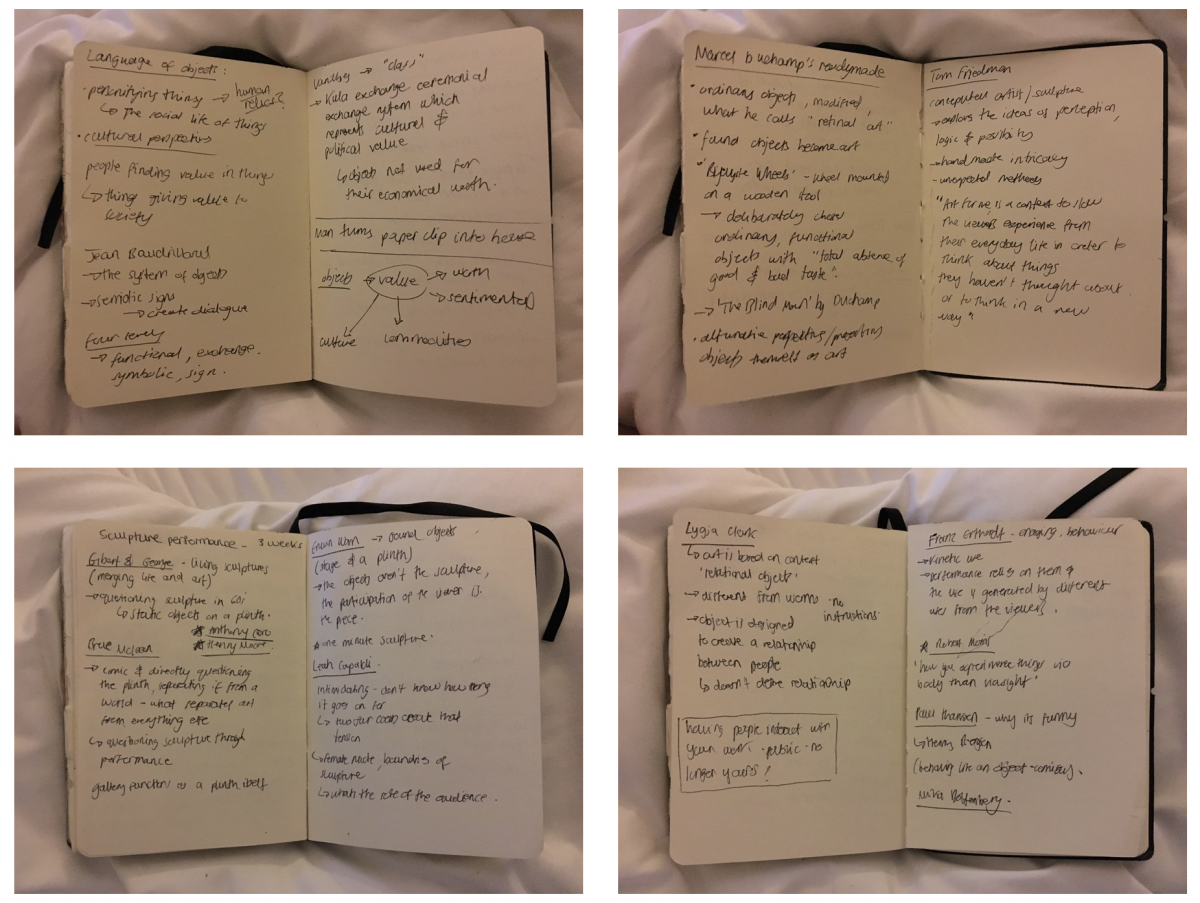 Language of objects:
· personifying things → human relics?
↳ the social life of things
· cultural perspectives
people finding value in things
↳ things giving value to
society
Jean Baudrillard
→ the system of objects
→ semiotic signs
→ create dialogue
Four levels
→ functional, exchange,
symbolic, sign.
→ "class"
→ Kula exchange ceremonial
exchange system which
represents cultural &
political value
↳ objects not used for
their economical worth.
man turns paper clip into house
objects → value → worth
→ sentimental
culture
commodities
Marcel Duchamp's readymade
· ordinary objects, modified,
what he calls "retinal art"
· found objects become art
- wheel mounted
on a wooden stool
→ deliberately chose
ordinary, functional
objects with "total absence of
good & bad taste".
→ 'The Blind Man' by Duchamp
· alternative perspective/presenting
objects themself as art
Tom Friedman
conceptual artist/sculpture
→ explores the ideas of perception,
logic & possibility
→ handmade intricacy
- unexpected methods
"Art for me is a context to slow
the viewers experience from
their everyday life in order to
think about things
they haven't thought about
or to think in a new
way".
Sculpture performance - 3 weeks
Gilbert & George - living sculptures
(merging life and art)
→ questioning sculpture in
↳ static objects on a plinth.
* Anthony Caro
* Henry Moore
Bruce Mclean
→ comic & directly questioning
the plinth, separating it from a
world - what separates art
from everything else
↳ questioning sculpture through
performance
gallery function as a plinth itself
Erwin Wurm → objects
(stage of a plinth)
→ the objects aren't the sculpture,
the participation of the viewer is
the piece.
* one minute sculpture.
Leah Capaldi
intimidating - don't know how long
it goes on for
↳ create that
tension
↳ female nude, boundries of
sculpture
↳ whats the role of the audience.
Lygia Clark
↳ art is based on context
'relational objects'
→ different from worms - no
instructions
→ object is designed
to create a relationship
between people
↳ doesn't define relationship
having people interact with
your work - public - no
longer yours!
Franz Erhard - behaviour
→ Kinetic use
→ performance relies on them &
the use is generated by different
uses from the viewer.
* Robert Morris
'how you experience things via
body than
Paul - why its funny
↳ Henry
(behaving like an object - comical).
Mika Rottenberg.